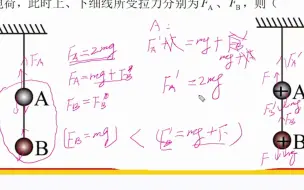 电荷，此时上、下细线所受拉力分别为F_A、F_B，则（
A:
F_A=2mg
F_A'+
=mg+
mg+
F_A=mg+F_B
F_A'=2mg
F_B=
F_B=mg < F_B'=mg+F
F_A
A
B
F
A
F_B'
mg
B
F
mg